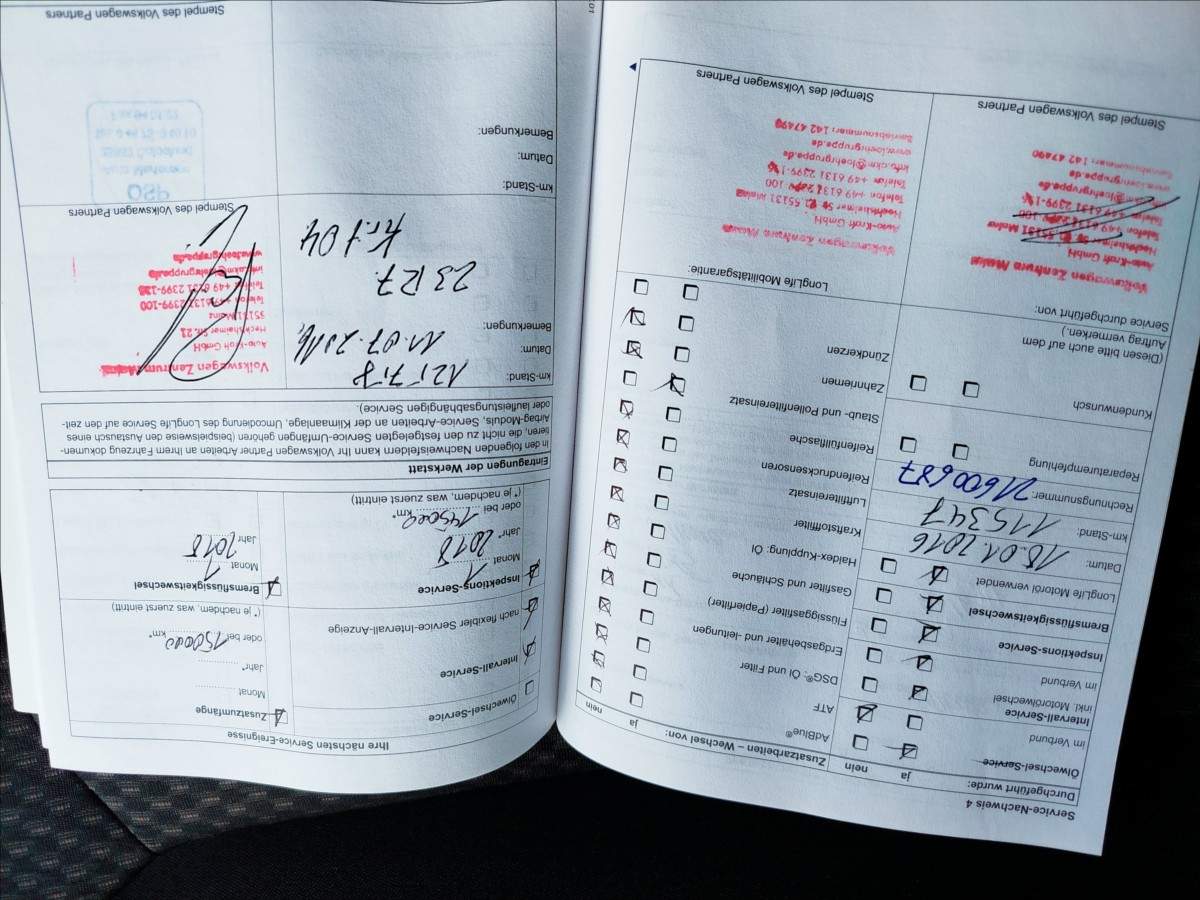 Service-Nachweis 4
Durchgeführt wurde:
ja nein
Ölwechsel-Service
im Verbund
Intervall-Service
inkl. Motorölwechsel
im Verbund
Inspektions-Service
Bremsflüssigkeitswechsel
LongLife Motoröl verwendet
Datum: 18.01.2016
km-Stand: 115347
Rechnungsnummer: 21600687
Reparaturempfehlung
Kundenwunsch
(Diesen bitte auch auf dem
Auftrag vermerken.)
Service durchgeführt von:
Volkswagen Zentrum Mainz
Auto-Kraft GmbH
Hechtsheimer 55131 Mainz
Telefon +49 6131 100
Telefax +49 6131 2399-1
@loehrgruppe.de
www.loehrgruppe.de
Betriebsnummer: 142 47490
Stempel des Volkswagen Partners
Zusatzarbeiten – Wechsel von:
ja nein
AdBlue®
ATF
DSG®: Öl und Filter
Erdgasbehälter und -leitungen
Flüssiggasfilter (Papierfilter)
Gasfilter und Schläuche
Haldex-Kupplung: Öl
Kraftstofffilter
Luftfiltereinsatz
Reifendrucksensoren
Reifenfüllflasche
Staub- und Pollenfiltereinsatz
Zahnriemen
Zündkerzen
LongLife Mobilitätsgarantie:
Volkswagen Zentrum Mainz
Auto-Kraft GmbH
Hechtsheimer 55131 Mainz
Telefon +49 6131 100
Telefax +49 6131 2399-1
@loehrgruppe.de
www.loehrgruppe.de
Betriebsnummer: 142 47490
Stempel des Volkswagen Partners
Ihre nächsten Service-Ereignisse
Ölwechsel-Service
Intervall-Service
nach flexibler Service-Intervall-Anzeige
Inspektions-Service
Monat 1
Jahr* 2018
oder bei 145000 km*
(* je nachdem, was zuerst eintritt)
Zusatzumfänge
Monat
Jahr*
oder bei 150000 km*
(* je nachdem, was zuerst eintritt)
Bremsflüssigkeitswechsel
Monat 1
Jahr 2018
Eintragungen der Werkstatt
In den folgenden Nachweisfeldern kann Ihr Volkswagen Partner Arbeiten an Ihrem Fahrzeug dokumen-
tieren, die nicht zu den festgelegten Service-Umfängen gehören (beispielsweise den Austausch eines
Airbag-Moduls, Service-Arbeiten an der Klimaanlage, Umcodierung des LongLife Service auf den zeit-
oder laufleistungsabhängigen Service).
km-Stand:
Datum: 11.07.2016
Bemerkungen:
23R7.
Volkswagen Zentrum Mainz
Auto-Kraft GmbH
Hechtsheimer Str. 23
55131 Mainz
Telefon +49 6131 2399-100
Telefax +49 6131 2399-
www.loehrgruppe.de
Stempel des Volkswagen Partners
km-Stand:
Datum:
Bemerkungen:
Stempel des Volkswagen Partners